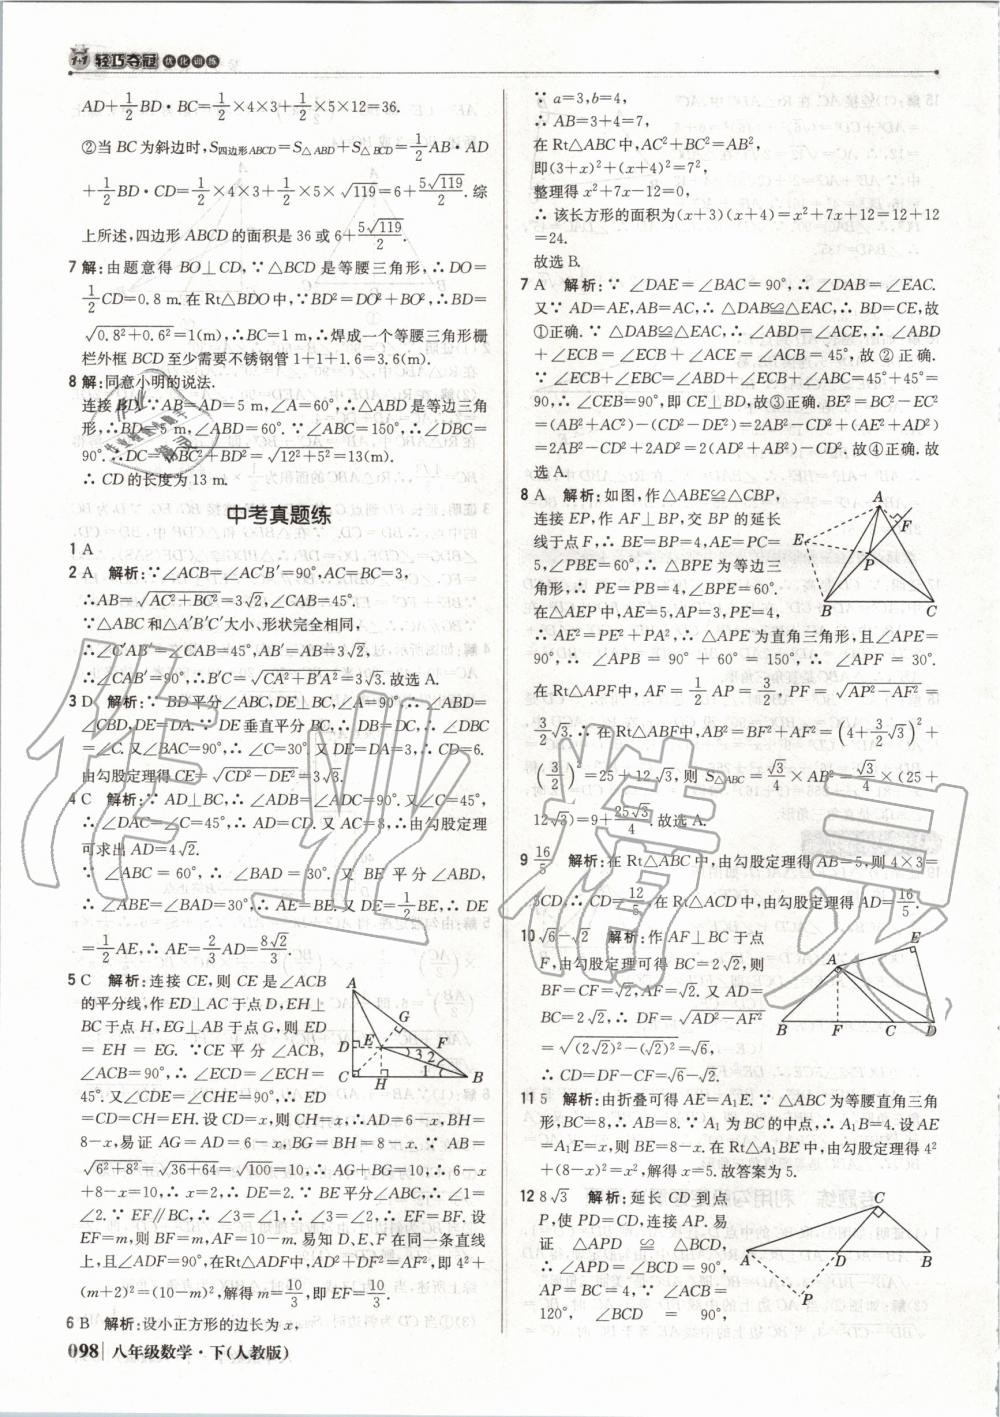 1+1 轻巧夺冠 优化训练
AD+1/2BD·BC=1/2×4×3+1/2×5×12=36.
②当BC为斜边时,S四边形ABCD=S△ABD+S△BCD=1/2AB·AD
+1/2BD·CD=1/2×4×3+1/2×5×√119=6+5√119/2.综
上所述,四边形ABCD的面积是36或6+5√119/2.
7 解:由题意得BO⊥CD,∵△BCD是等腰三角形,∴DO=
1/2CD=0.8 m.在Rt△BDO中,∵BD²=DO²+BO²,∴BD=
√0.8²+0.6²=1(m),∴BC=1 m,∴焊成一个等腰三角形栅
栏外框BCD至少需要不锈钢管1+1+1.6=3.6(m).
8 解:同意小明的说法.
连接BD.∵AB=AD=5 m,∠A=60°,∴△ABD是等边三角
形,∴BD=5 m,∠ABD=60°.∵∠ABC=150°,∴∠DBC=
90°.∴DC=√BC²+BD²=√12²+5²=13(m).
∴CD的长度为13 m.
中考真题练
1 A
2 A 解析:∵∠ACB=∠AC′B′=90°,AC=BC=3,
∴AB=√AC²+BC²=3√2,∠CAB=45°.
∵△ABC和△A′B′C′大小、形状完全相同,
∴∠C′AB′=∠CAB=45°,AB′=AB=3√2,
∴∠CAB′=90°,∴B′C=√CA²+B′A²=3√3.故选A.
3 D 解析:∵BD平分∠ABC,DE⊥BC,∠A=90°,∴∠ABD=
∠CBD,DE=DA.∵DE垂直平分BC,∴DB=DC,∴∠DBC
=∠C.又∠BAC=90°,∴∠C=30°.又DE=DA=3,∴CD=6.
由勾股定理得CE=√CD²-DE²=3√3.
4 C 解析:∵AD⊥BC,∴∠ADB=∠ADC=90°.又∠C=45°,
∴∠DAC=∠C=45°,∴AD=CD.又AC=8,∴由勾股定理
可求出AD=4√2.
∵∠ABC=60°,∴∠BAD=30°.又BE平分∠ABD,
∴∠ABE=∠BAD=30°,∴AE=BE.又DE=1/2BE,∴DE
=1/2AE,∴AE=2/3AD=8√2/3.
5 C 解析:连接CE,则CE是∠ACB
的平分线,作ED⊥AC于点D,EH⊥
BC于点H,EG⊥AB于点G,则ED
=EH=EG.∵CE平分∠ACB,
∠ACB=90°,∴∠ECD=∠ECH=
45°.又∠CDE=∠CHE=90°,∴ED
=CD=CH=EH.设CD=x,则CH=x,∴AD=6-x,BH=
8-x,易证AG=AD=6-x,BG=BH=8-x.∵AB=
√6²+8²=√36+64=√100=10,∴AG+BG=10,∴6-x
+8-x=10,∴x=2,∴DE=2.∵BE平分∠ABC,∴∠1=
∠2.∵EF∥BC,∴∠3=∠1,∴∠3=∠2,∴EF=BF.设
EF=m,则BF=m,AF=10-m.易知D、E、F在同一条直线
上,且∠ADF=90°,在Rt△ADF中,AD²+DF²=AF²,即4²+
(m+2)²=(10-m)²,解得m=10/3,即EF=10/3.
6 B 解析:设小正方形的边长为x,
A
G
D E F
3 2
1
C H B
∵a=3,b=4,
∴AB=3+4=7,
在Rt△ABC中,AC²+BC²=AB²,
即(3+x)²+(x+4)²=7²,
整理得x²+7x-12=0,
∴该长方形的面积为(x+3)(x+4)=x²+7x+12=12+12
=24.
故选B.
7 A 解析:∵∠DAE=∠BAC=90°,∴∠DAB=∠EAC.
又∵AD=AE,AB=AC,∴△DAB≌△EAC,∴BD=CE,故
①正确.∵△DAB≌△EAC,∴∠ABD=∠ACE,∴∠ABD
+∠ECB=∠ECB+∠ACE=∠ACB=45°,故②正确.
∵∠ECB+∠EBC=∠ABD+∠ECB+∠ABC=45°+45°=
90°,∴∠CEB=90°,即CE⊥BD,故③正确.BE²=BC²-EC²
=(AB²+AC²)-(CD²-DE²)=2AB²-CD²+(AE²+AD²)
=2AB²-CD²+2AD²=2(AD²+AB²)-CD²,故④正确.故
选A.
8 A 解析:如图,作△ABE≌△CBP,
连接EP,作AF⊥BP,交BP的延长
线于点F,∴BE=BP=4,AE=PC=
5,∠PBE=60°,∴△BPE为等边三
角形,∴PE=PB=4,∠BPE=60°.
在△AEP中,AE=5,AP=3,PE=4,
∴AE²=PE²+PA²,∴△APE为直角三角形,且∠APE=
90°,∴∠APB=90°+60°=150°,∴∠APF=30°.
在Rt△APF中,AF=1/2AP=3/2,PF=√AP²-AF²=
3/2√3.∴在Rt△ABF中,AB²=BF²+AF²=(4+3/2√3)²+
(3/2)²=25+12√3,则S△ABC=√3/4×AB²=√3/4×(25+
12√3)=9+25√3/4.故选A.
A
E F
P
B C
9 16/5 解析:在Rt△ABC中,由勾股定理得AB=5,则4×3=
5CD,∴CD=12/5.在Rt△ACD中,由勾股定理得AD=16/5.
10 √6-√2 解析:作AF⊥BC于点
F,由勾股定理可得BC=2√2,则
BF=CF=√2,AF=√2.又AD=
BC=2√2,∴DF=√AD²-AF²
=√(2√2)²-(√2)²=√6,
∴CD=DF-CF=√6-√2.
E
A
B F C D
11 5 解析:由折叠可得AE=A₁E.∵△ABC为等腰直角三角
形,BC=8,∴AB=8.∵A₁为BC的中点,∴A₁B=4.设AE
=A₁E=x,则BE=8-x.在Rt△A₁BE中,由勾股定理得4²
+(8-x)²=x²,解得x=5.故答案为5.
12 8√3 解析:延长CD到点
P,使PD=CD,连接AP.易
证△APD≌△BCD,
∴∠APD=∠BCD=90°,
AP=BC=4,∵∠ACB=
120°,∠BCD=90°,
C
A D B
P
098 八年级数学·下(人教版)
作业精灵